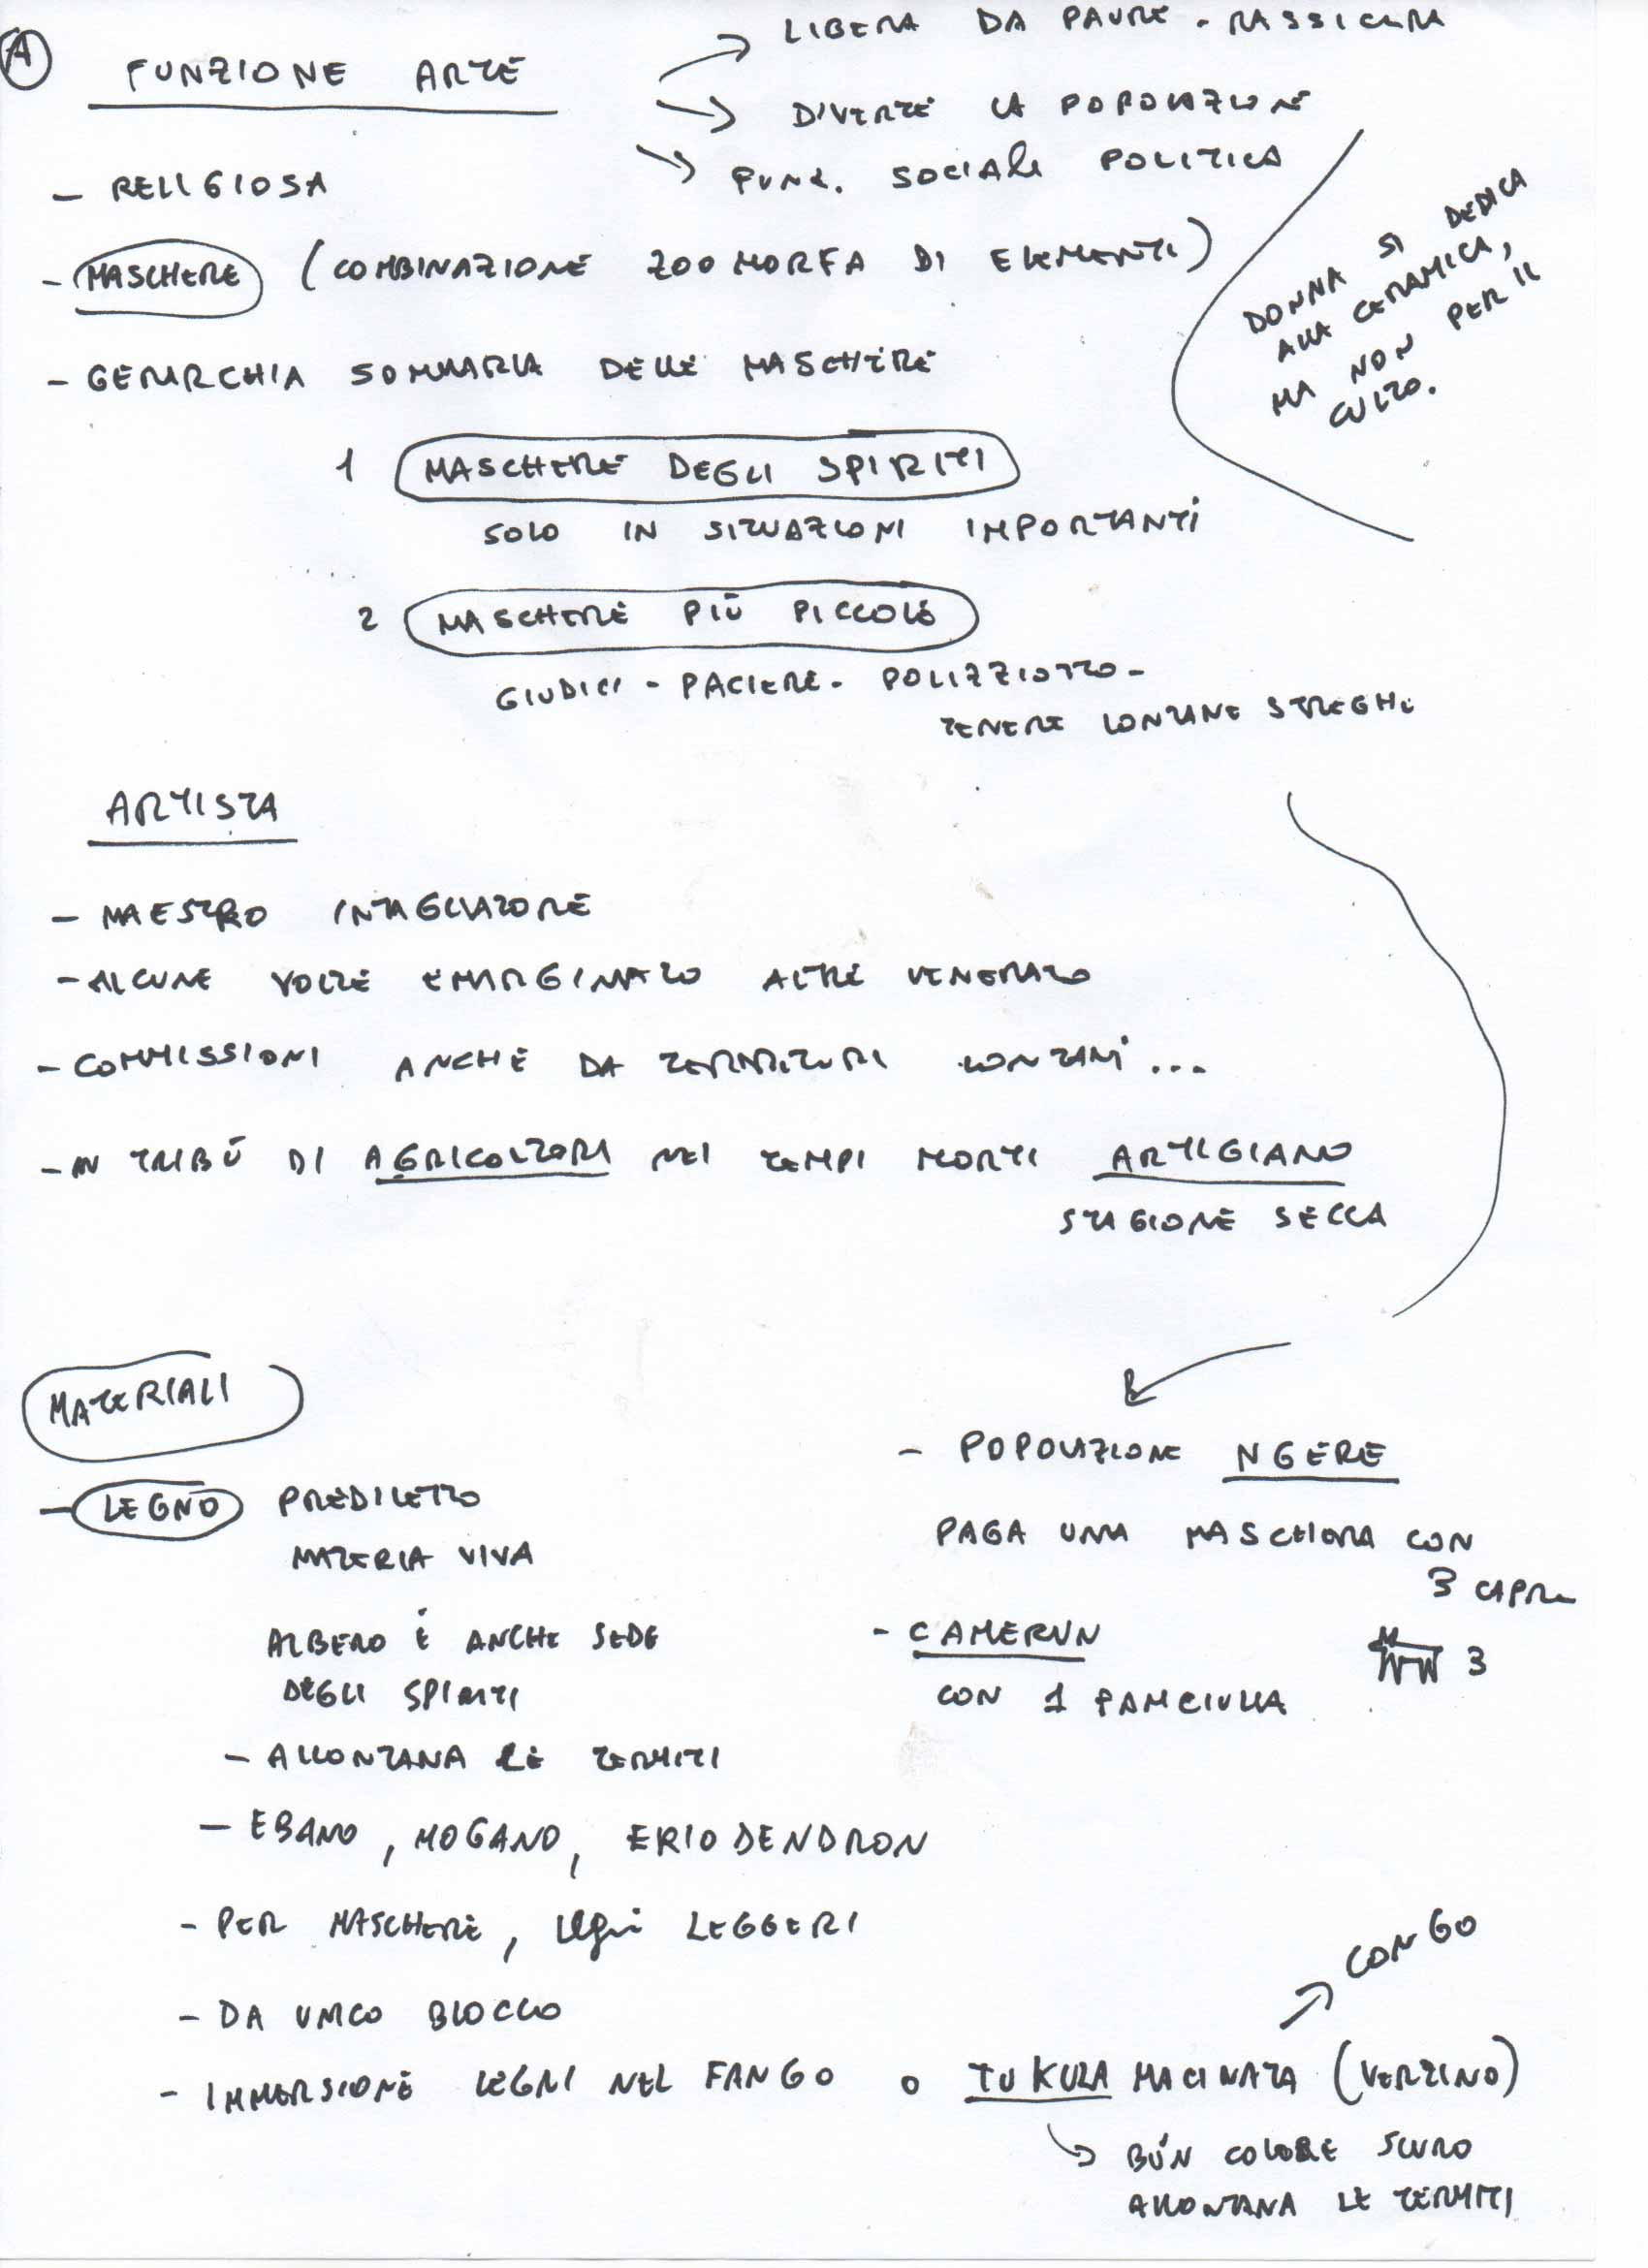 A
FUNZIONE ARTE
→ LIBERA DA PAURE - RASSICURA
→ DIVERTE LA POPOLAZIONE
→ FUNZ. SOCIALE POLITICA
- RELIGIOSA
- MASCHERE (COMBINAZIONE ZOOMORFA DI ELEMENTI)
DONNA SI DEDICA
ALLA CERAMICA,
MA NON PER IL
CULTO.
- GERARCHIA SOMMARIA DELLE MASCHERE
1 MASCHERE DEGLI SPIRITI
SOLO IN SITUAZIONI IMPORTANTI
2 MASCHERE PIÙ PICCOLE
GIUDICI - PACIERE - POLIZZIOTTO -
TENERE LONTANE STREGHE
ARTISTA
- MAESTRO INTAGLIATORE
- ALCUNE VOLTE EMARGINATO ALTRE VENERATO
- COMMISSIONI ANCHE DA TERRITORI LONTANI...
- IN TRIBÙ DI AGRICOLTORI NEI TEMPI MORTI ARTIGIANO
STAGIONE SECCA
- POPOLAZIONE NGERE
PAGA UNA MASCHERA CON
3 CAPRE
3
- CAMERUN
CON 1 FANCIULLA
MATERIALI
- LEGNO PREDILETTO
MATERIA VIVA
ALBERO È ANCHE SEDE
DEGLI SPIRITI
- ALLONTANA LE TERMITI
- EBANO, MOGANO, ERIODENDRON
- PER MASCHERE, legni LEGGERI
- DA UNICO BLOCCO
- IMMERSIONE LEGNI NEL FANGO O TUKULA MACINATA (VERZINO)
→ CONGO
→ BÚN COLORE SCURO
ALLONTANA LE TERMITI